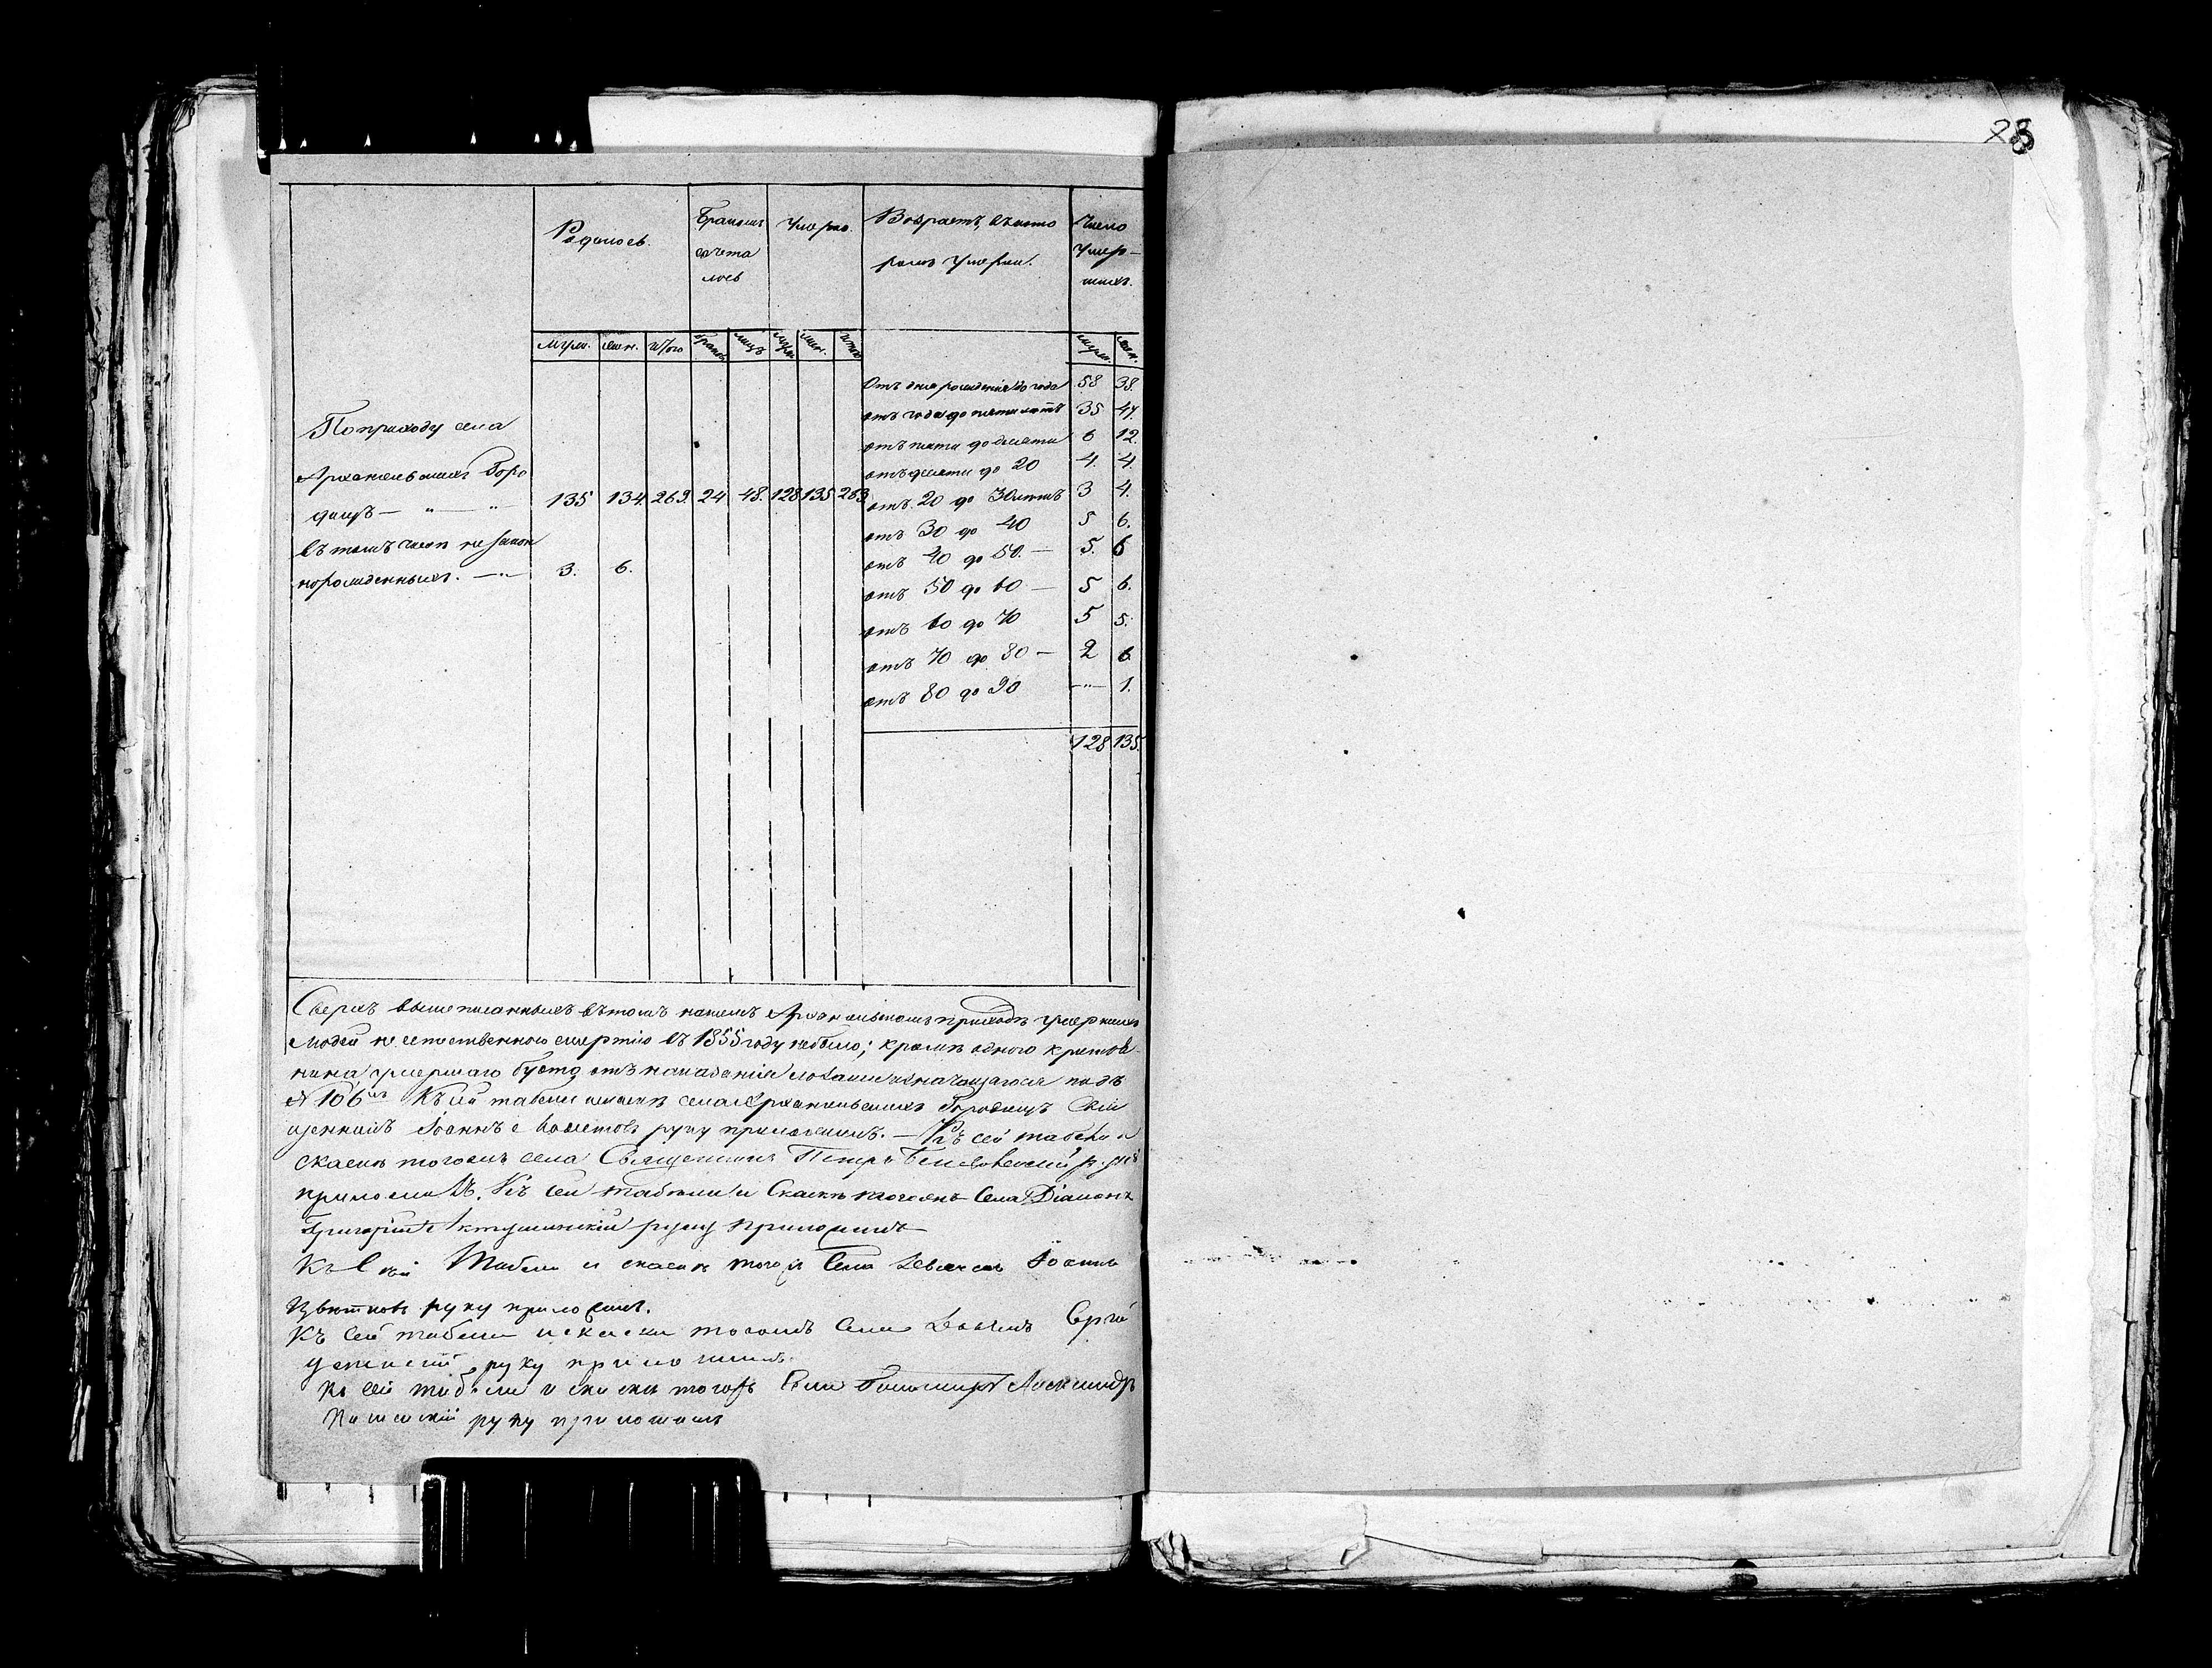 28
Родилось.
Бракомъ
сочета
лось
Умерло.
Возрастъ, въ кото
ромъ умерли.
Число
Умер-
шихъ.
муж. жен. итого браков лицъ муж. жен. итого муж. жен.
Отъ дня рожденія до года 58 38.
отъ года до пяти летъ 35 47.
По приходу села
отъ пяти до десяти 6 12.
Архангельскихъ Горо
отъ десяти до 20 4. 4.
дищъ — " — " 135 134. 269. 24 48. 128 135 263
отъ 20 до 30 летъ 3 4.
въ томъ числе незакон
отъ 30 до 40 5 6.
отъ 40 до 50. — 5. 6
норожденныхъ. —"— 3. 6.
отъ 50 до 60 — 5 6.
отъ 60 до 70 5 5.
отъ 70 до 80 — 2 6.
отъ 80 до 90 —"— 1.
128 135.
Сверхъ вышеписанныхъ въ томъ нашемъ Архангельскомъ приходе умершихъ
людей не естественною смертію въ 1855 году небыло; кроме одного крестья-
нина умершаго отъ наказанія подъ
№ 106мъ Къ сей табели и скаске села Архангельскихъ Городищъ Свя
щенникъ Іоаннъ руку приложилъ. — Къ сей табели и
скаске тогожъ села Священникъ Петръ руку
приложилъ. Къ сей табели и Скаске тогожъ Села Діаконъ
Григорій руку приложилъ
Къ Сей Табели и скаске тогожъ Села Дьячекъ Іоаннъ
Цветковъ руку приложилъ.
Къ сей табели и скаски тогожъ Села Дьячекъ Сергій
руку приложилъ.
Къ сей табели и скаски тогожъ Села Пономарь Александръ
руку приложилъ